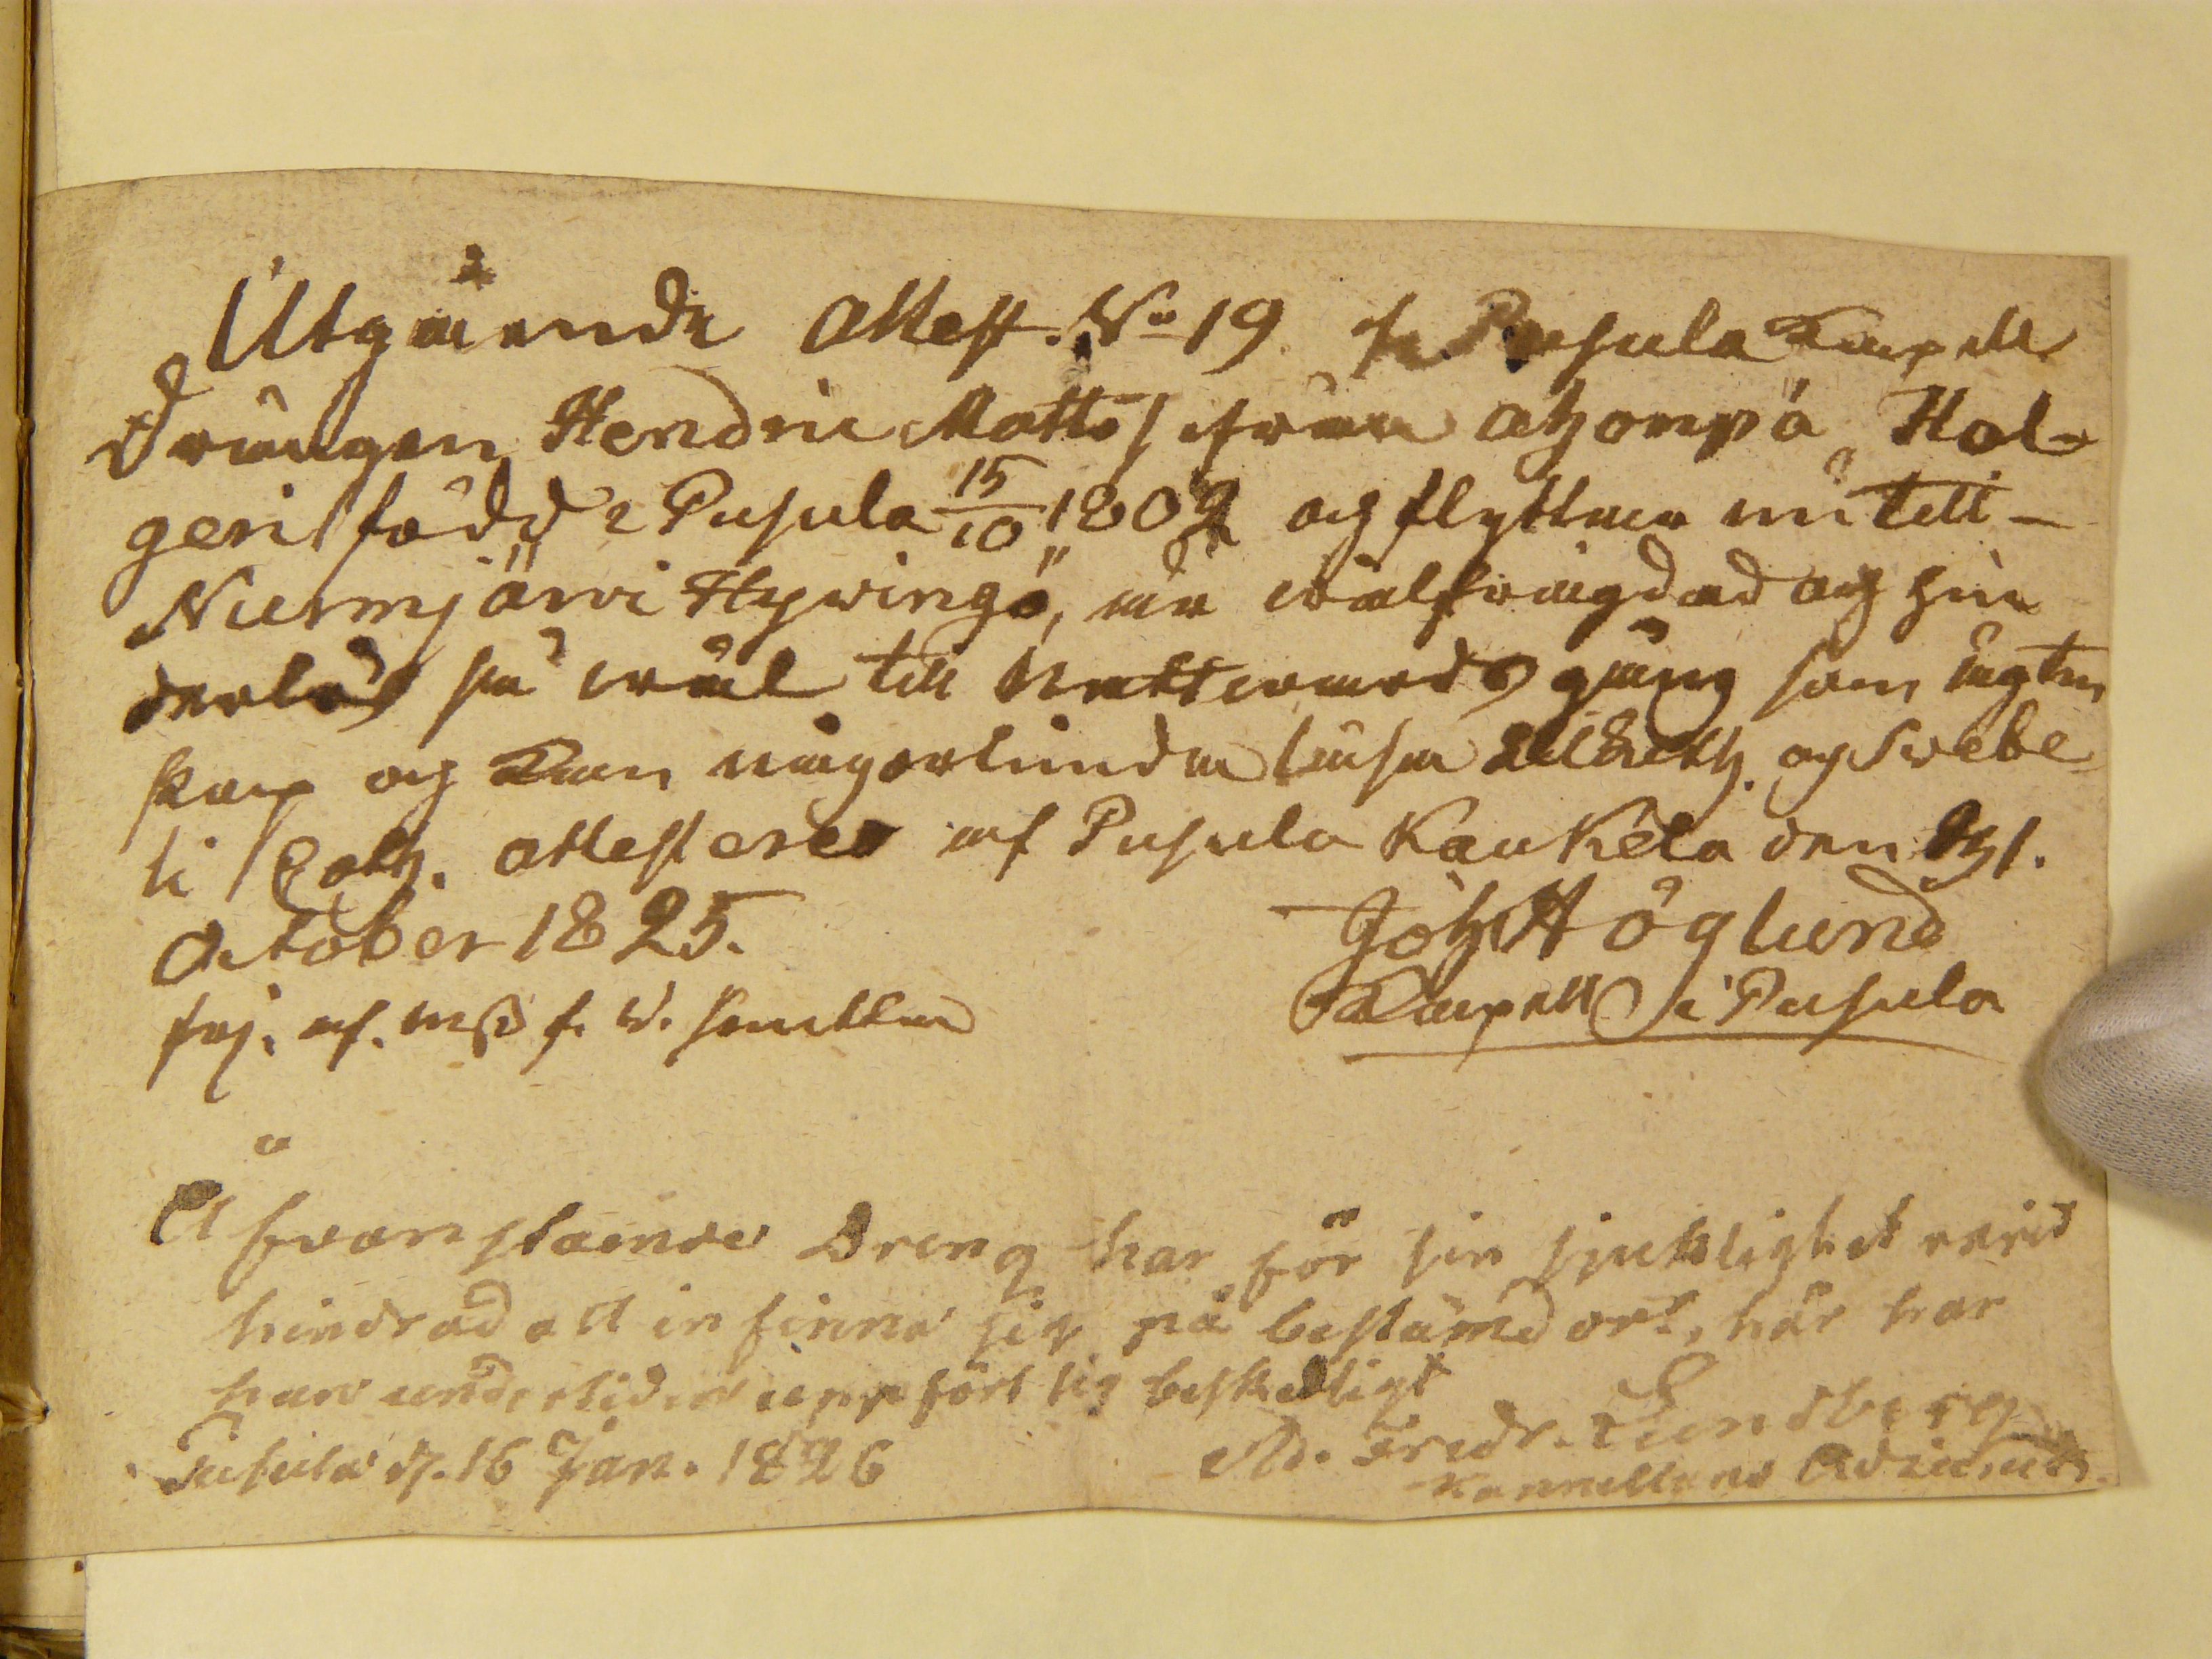 Utgående Attest. No 19 fr. Pusula Capell
Drängen Hendric Matts/ ifrån Ahonpä Hol-
geri/ född i Pusula 15/10 1802 og flyttar nu till
Nurmjärvi Hywingä, är wälfrägdad og hin
derlös så wäl till Nattwards gång som ägten
skap og kan någorlunda läsa og Svebe
li Cath. attesteres af Pusula Kaukela den 31.
October 1825. Joh. Höglund
Capell i Pusula
Ofvanstående Dreng har för sin sjuklighet varit
hindrad att infinna sig på bestämd ort, här har
han undertiden uppfört sig beskedligt
Pusula d. 16 Jan. 1826 Fredr. Lundberg
Adjunct.